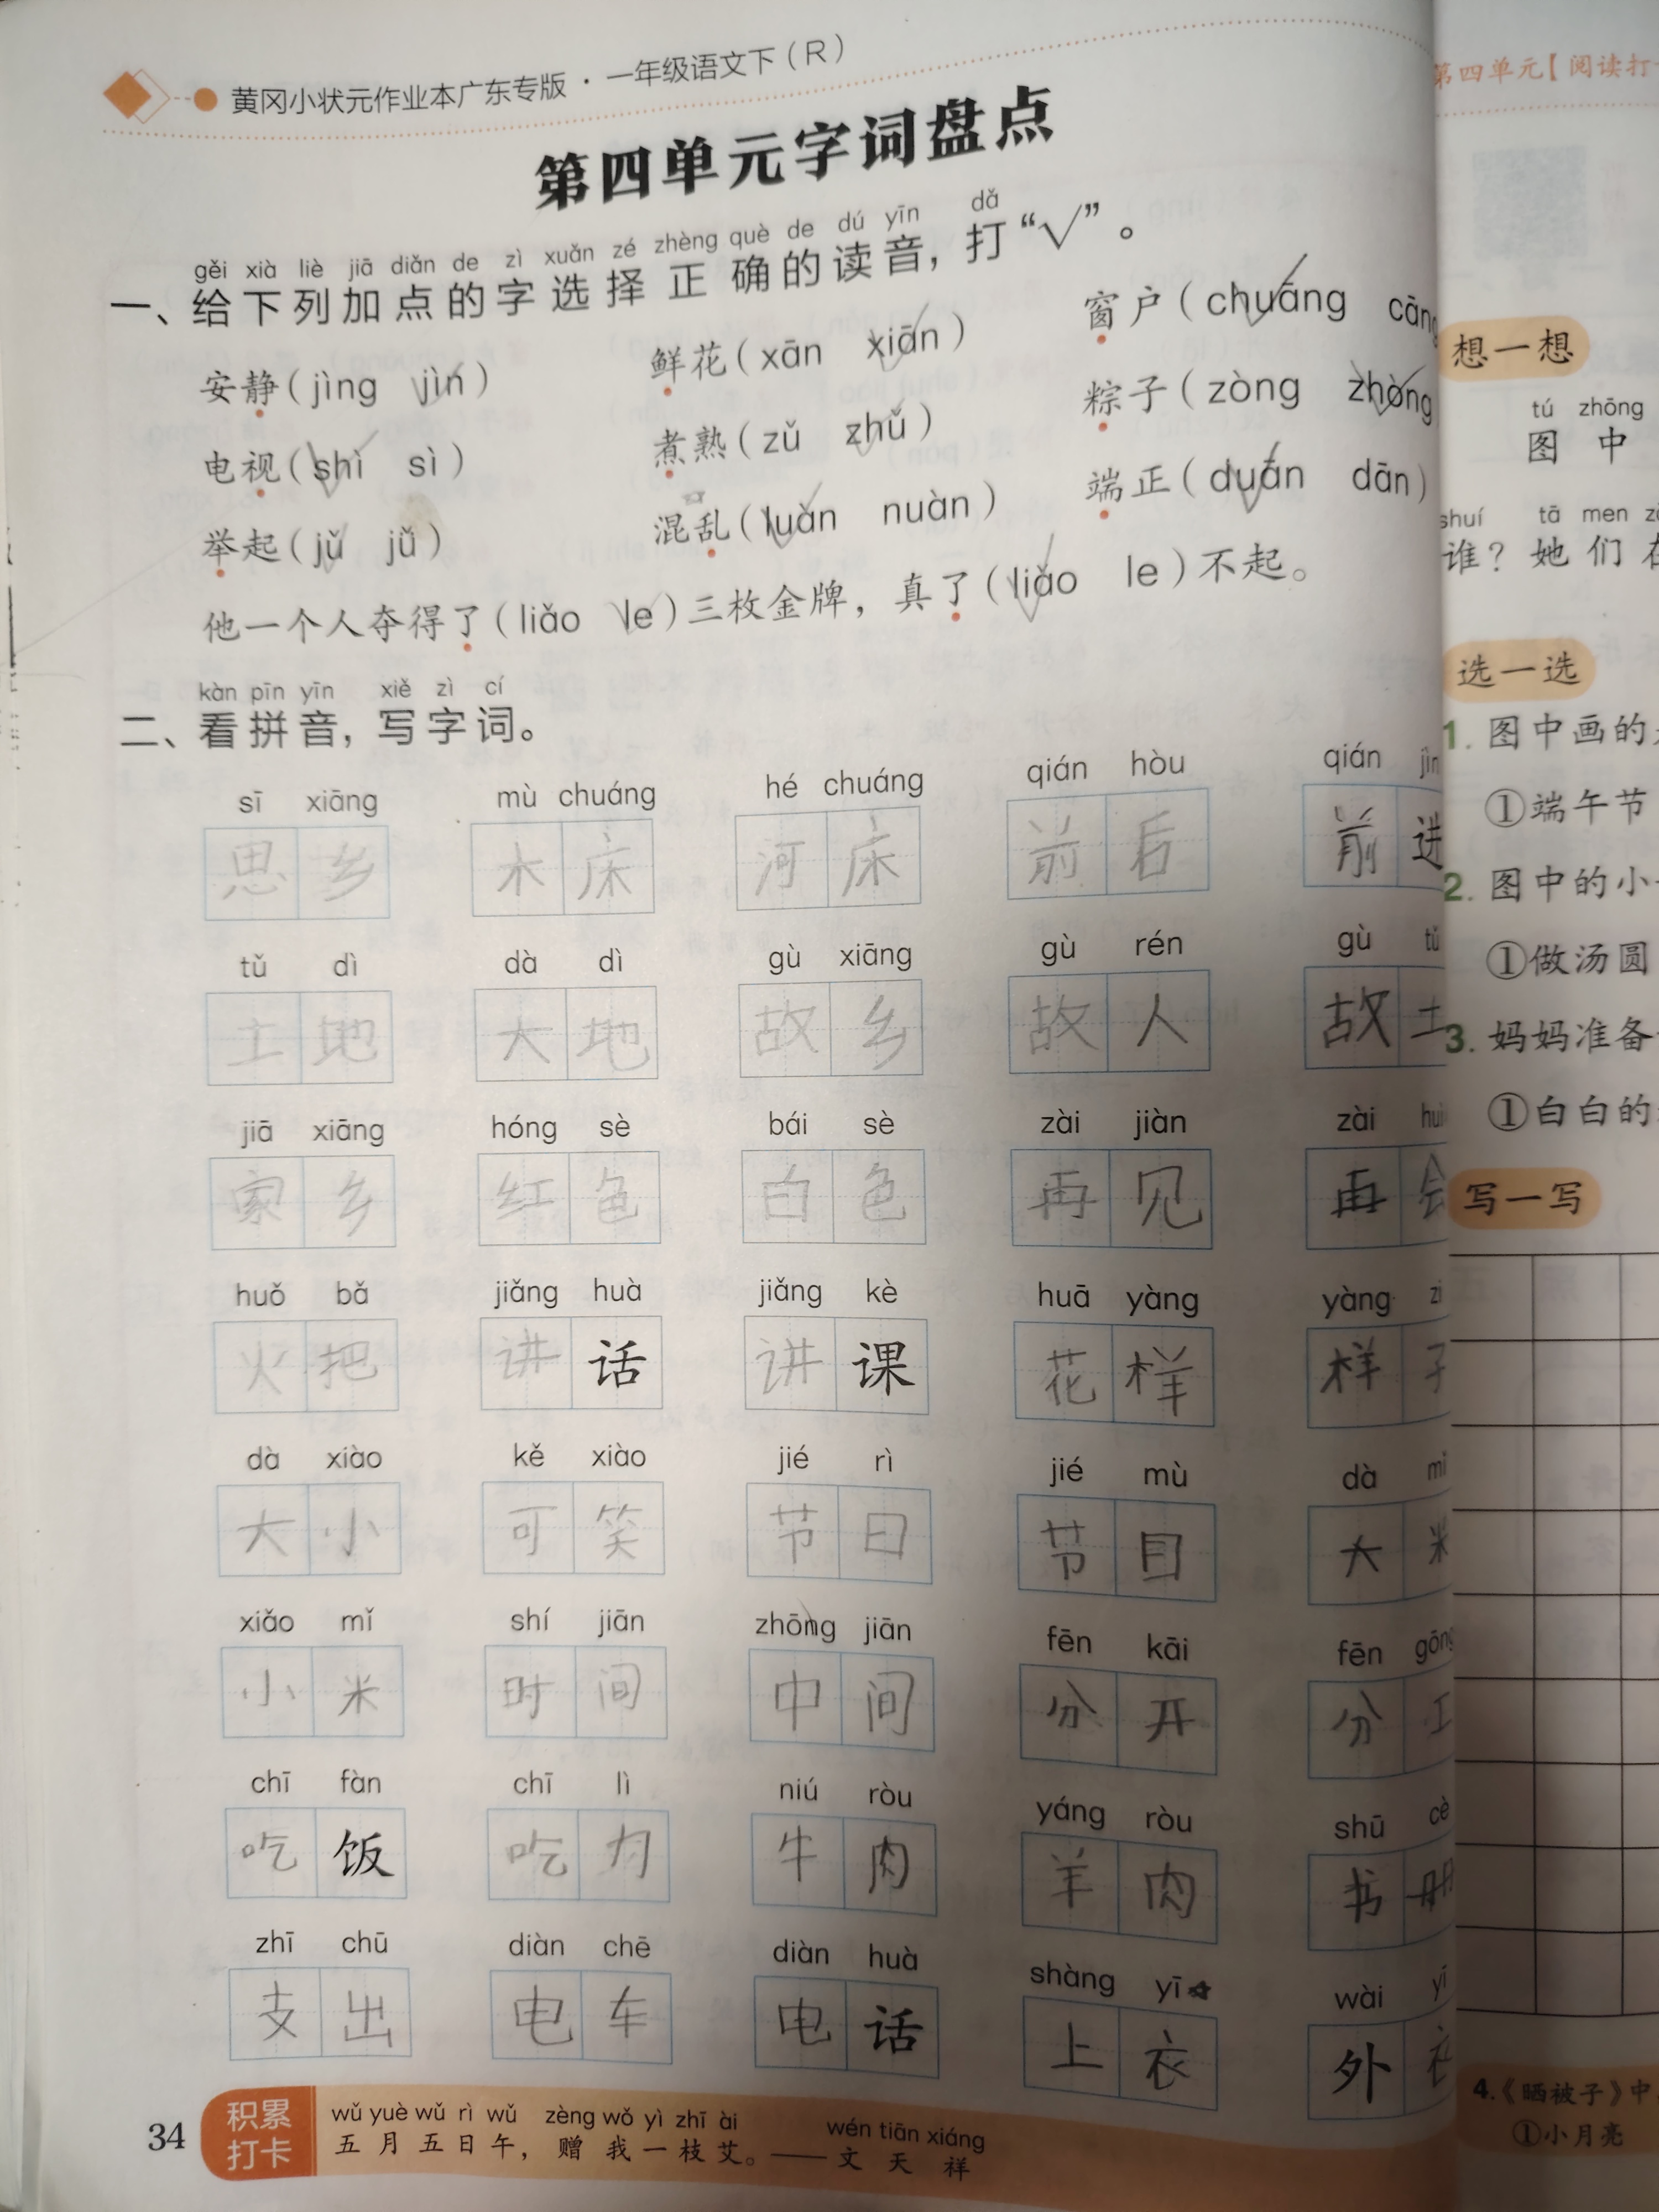 黄冈小状元作业本广东专版·一年级语文下（R）
第四单元字词盘点
gěi xià liè jiā diǎn de zì xuǎn zé zhèng què de dú yīn dǎ
一、给下列加点的字选择正确的读音，打“√”。
安静（jìng jìn） 鲜花（xān xiān） 窗户（chuāng cāng
电视（shì sì） 煮熟（zǔ zhǔ） 粽子（zòng zhòng
举起（jǔ jǚ） 混乱（luàn nuàn） 端正（duān dān）
他一个人夺得了（liǎo le）三枚金牌，真了（liǎo le）不起。
kàn pīn yīn xiě zì cí
二、看拼音，写字词。
sī xiāng mù chuáng hé chuáng qián hòu qián jìn
思乡 木床 河床 前后 前进
tǔ dì dà dì gù xiāng gù rén gù tǔ
土地 大地 故乡 故人 故土
jiā xiāng hóng sè bái sè zài jiàn zài huì
家乡 红色 白色 再见 再会
huǒ bǎ jiǎng huà jiǎng kè huā yàng yàng zi
火把 讲话 讲课 花样 样子
dà xiào kě xiào jié rì jié mù dà mǐ
大小 可笑 节日 节目 大米
xiǎo mǐ shí jiān zhōng jiān fēn kāi fēn gōng
小米 时间 中间 分开 分工
chī fàn chī lì niú ròu yáng ròu shū cè
吃饭 吃力 牛肉 羊肉 书册
zhī chū diàn chē diàn huà shàng yī wài yī
支出 电车 电话 上衣 外衣
34 积累打卡
wǔ yuè wǔ rì wǔ zèng wǒ yì zhī ài wén tiān xiáng
五月五日午，赠我一枝艾。——文天祥
第四单元【阅读打
想一想
tú zhōng
图中
shuí tā men
谁？她们
选一选
1. 图中画的
①端午节
2. 图中的小
①做汤圆
3. 妈妈准备
①白白的
写一写
4.《晒被子》中
①小月亮